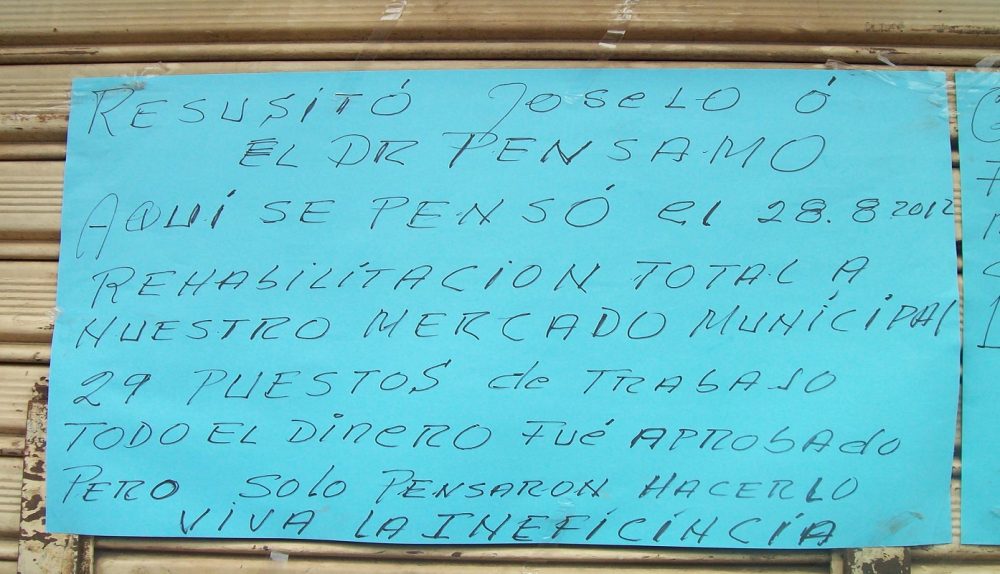 RESUSITÓ JOSELO Ó
EL DR PENSAMO
AQUÍ SE PENSÓ el 28.8 2012
REHABILITACION TOTAL A
NUESTRO MERCADO MUNICIPAL
29 PUESTOS de TRABAJO
TODO EL DINERO FUÉ APROBADO
PERO SOLO PENSARON HACERLO
VIVA LA INEFICINCIA